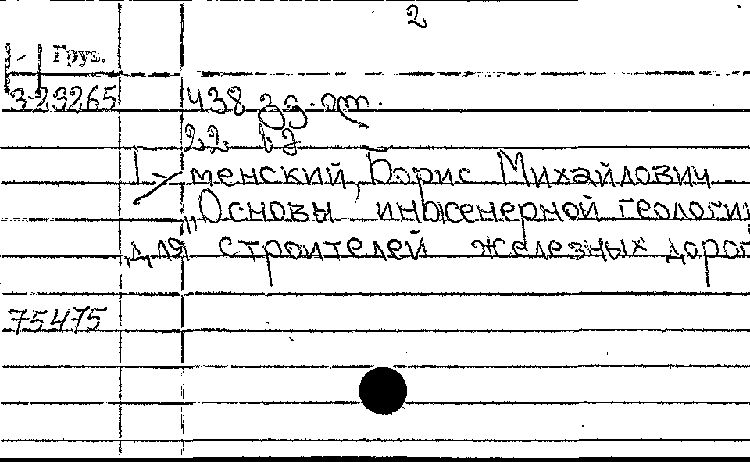 2
Груз.
323265 438 зд. от.
22 в з
менский, Борис Михайлович
„Основы инженерной геологии
для строителей железных дорог
75475